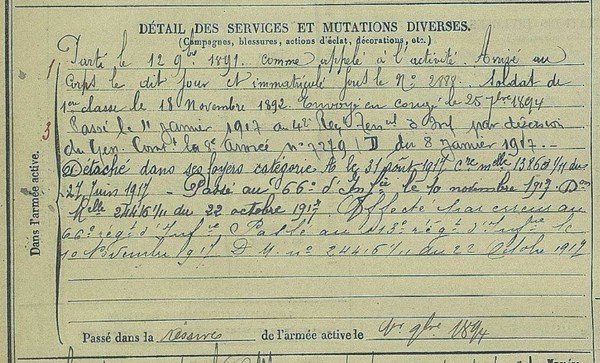 DÉTAIL DES SERVICES ET MUTATIONS DIVERSES.
(Campagnes, blessures, actions d'éclat, décorations, etc.)
Parti le 12 9bre 1891, comme appelé à l'activité. Arrivé au
1
Corps le dit jour et immatriculé sous le No 2888. Soldat de
1ère classe le 18 Novembre 1892. Envoyé en congé le 25 7bre 1894
3
Passé le 1er Janvier 1917 au 42e Reg Inf par décision
du Gen. Comt la 8e Armée No 7279 / D du 8 Janvier 1917.-
Détaché dans ses foyers catégorie A le 31 août 1917 Cre Melle 13860 1/11 du
27 Juin 1917 - Passé au 66e d'Inf.ie le 10 novembre 1917
Melle 24416 1/11 du 22 octobre 1917. Affecté au
66e régt d'Infie Passé au 13e régt d'Infie le
10 Novembre 1917 D.M. no 24416 1/11 du 22 Octobre 1917
Dans l'armée active.
Passé dans la réserve de l'armée active le 1er 9bre 1894